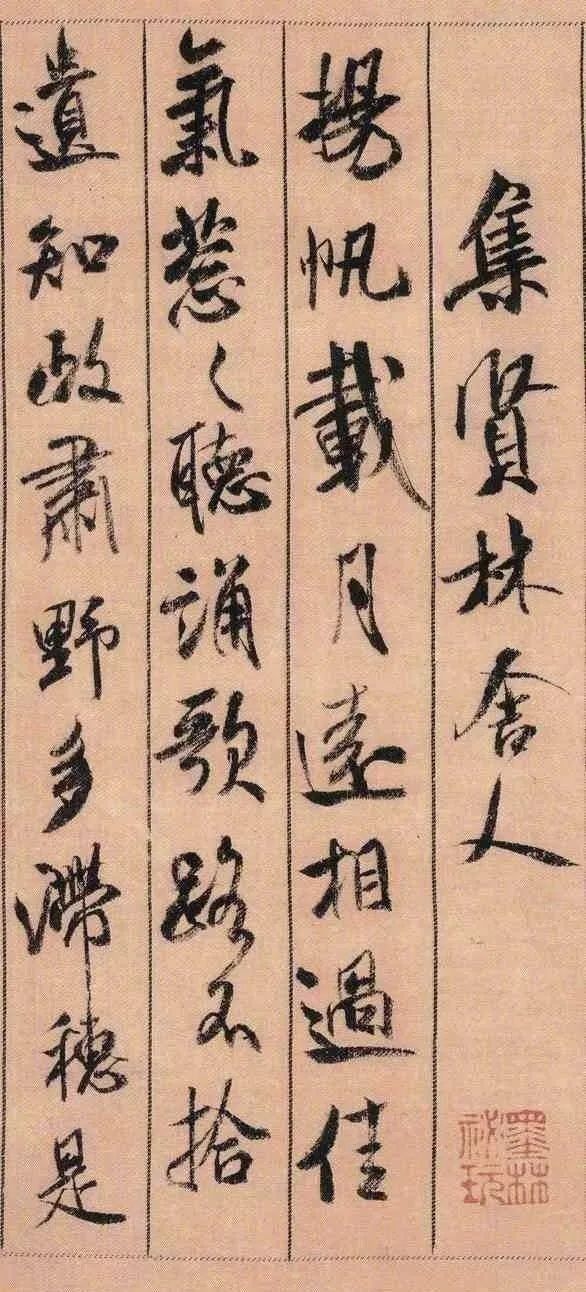 集賢林舍人
揚帆載月遠相過佳
氣葱々聽誦歌路不拾
遺知政肅野多滯穗是
墨林
祕玩